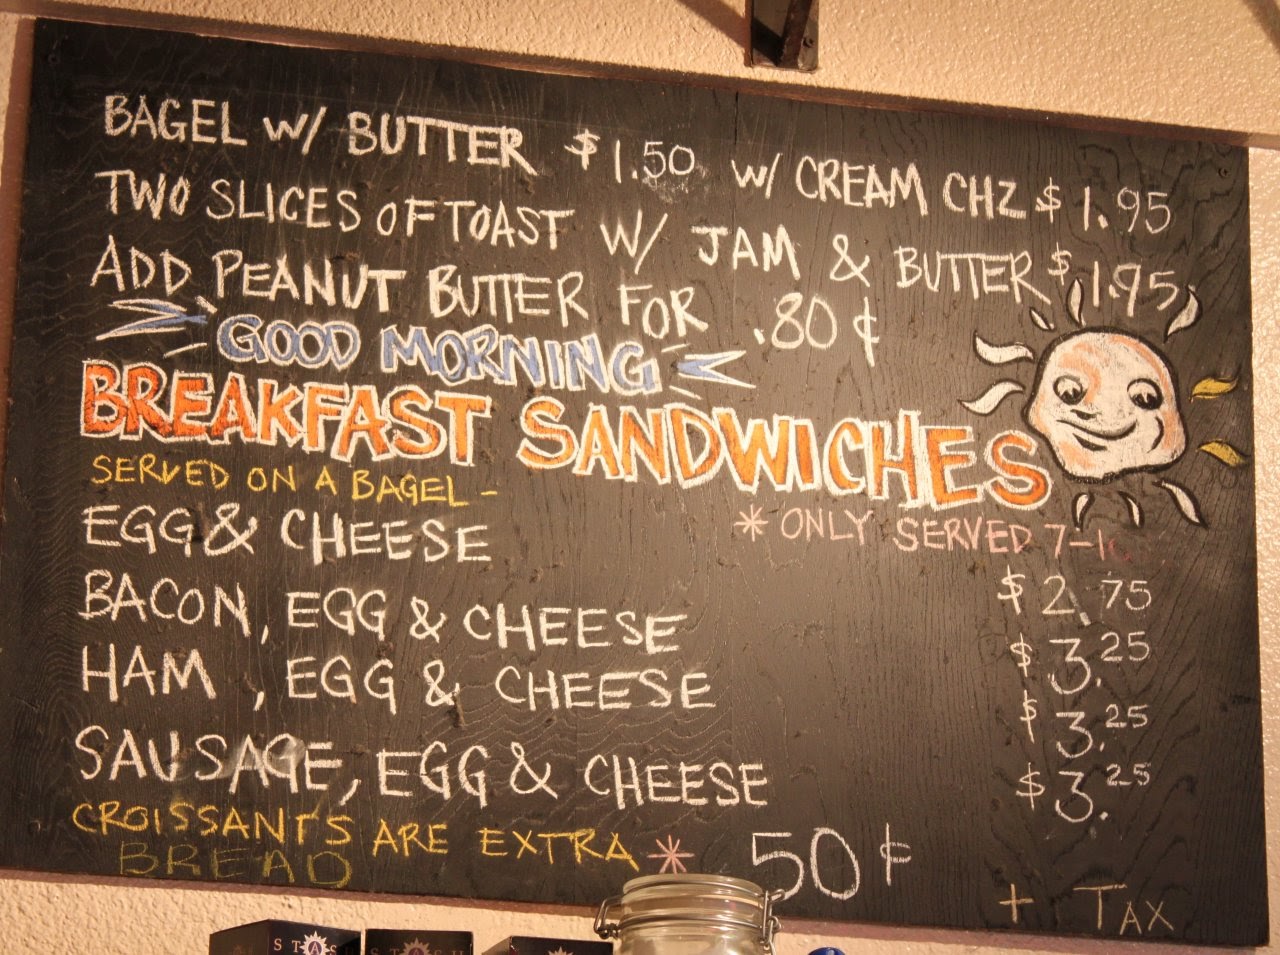 BAGEL W/ BUTTER $1.50 W/ CREAM CHZ $1.95
TWO SLICES OF TOAST W/ JAM & BUTTER $1.95
ADD PEANUT BUTTER FOR .80¢
GOOD MORNING
BREAKFAST SANDWICHES
SERVED ON A BAGEL -
* ONLY SERVED 7-10
EGG & CHEESE $2.75
BACON, EGG & CHEESE $3.25
HAM, EGG & CHEESE $3.25
SAUSAGE, EGG & CHEESE $3.25
CROISSANTS ARE EXTRA * 50¢
BREAD
+ TAX
STASH
STASH